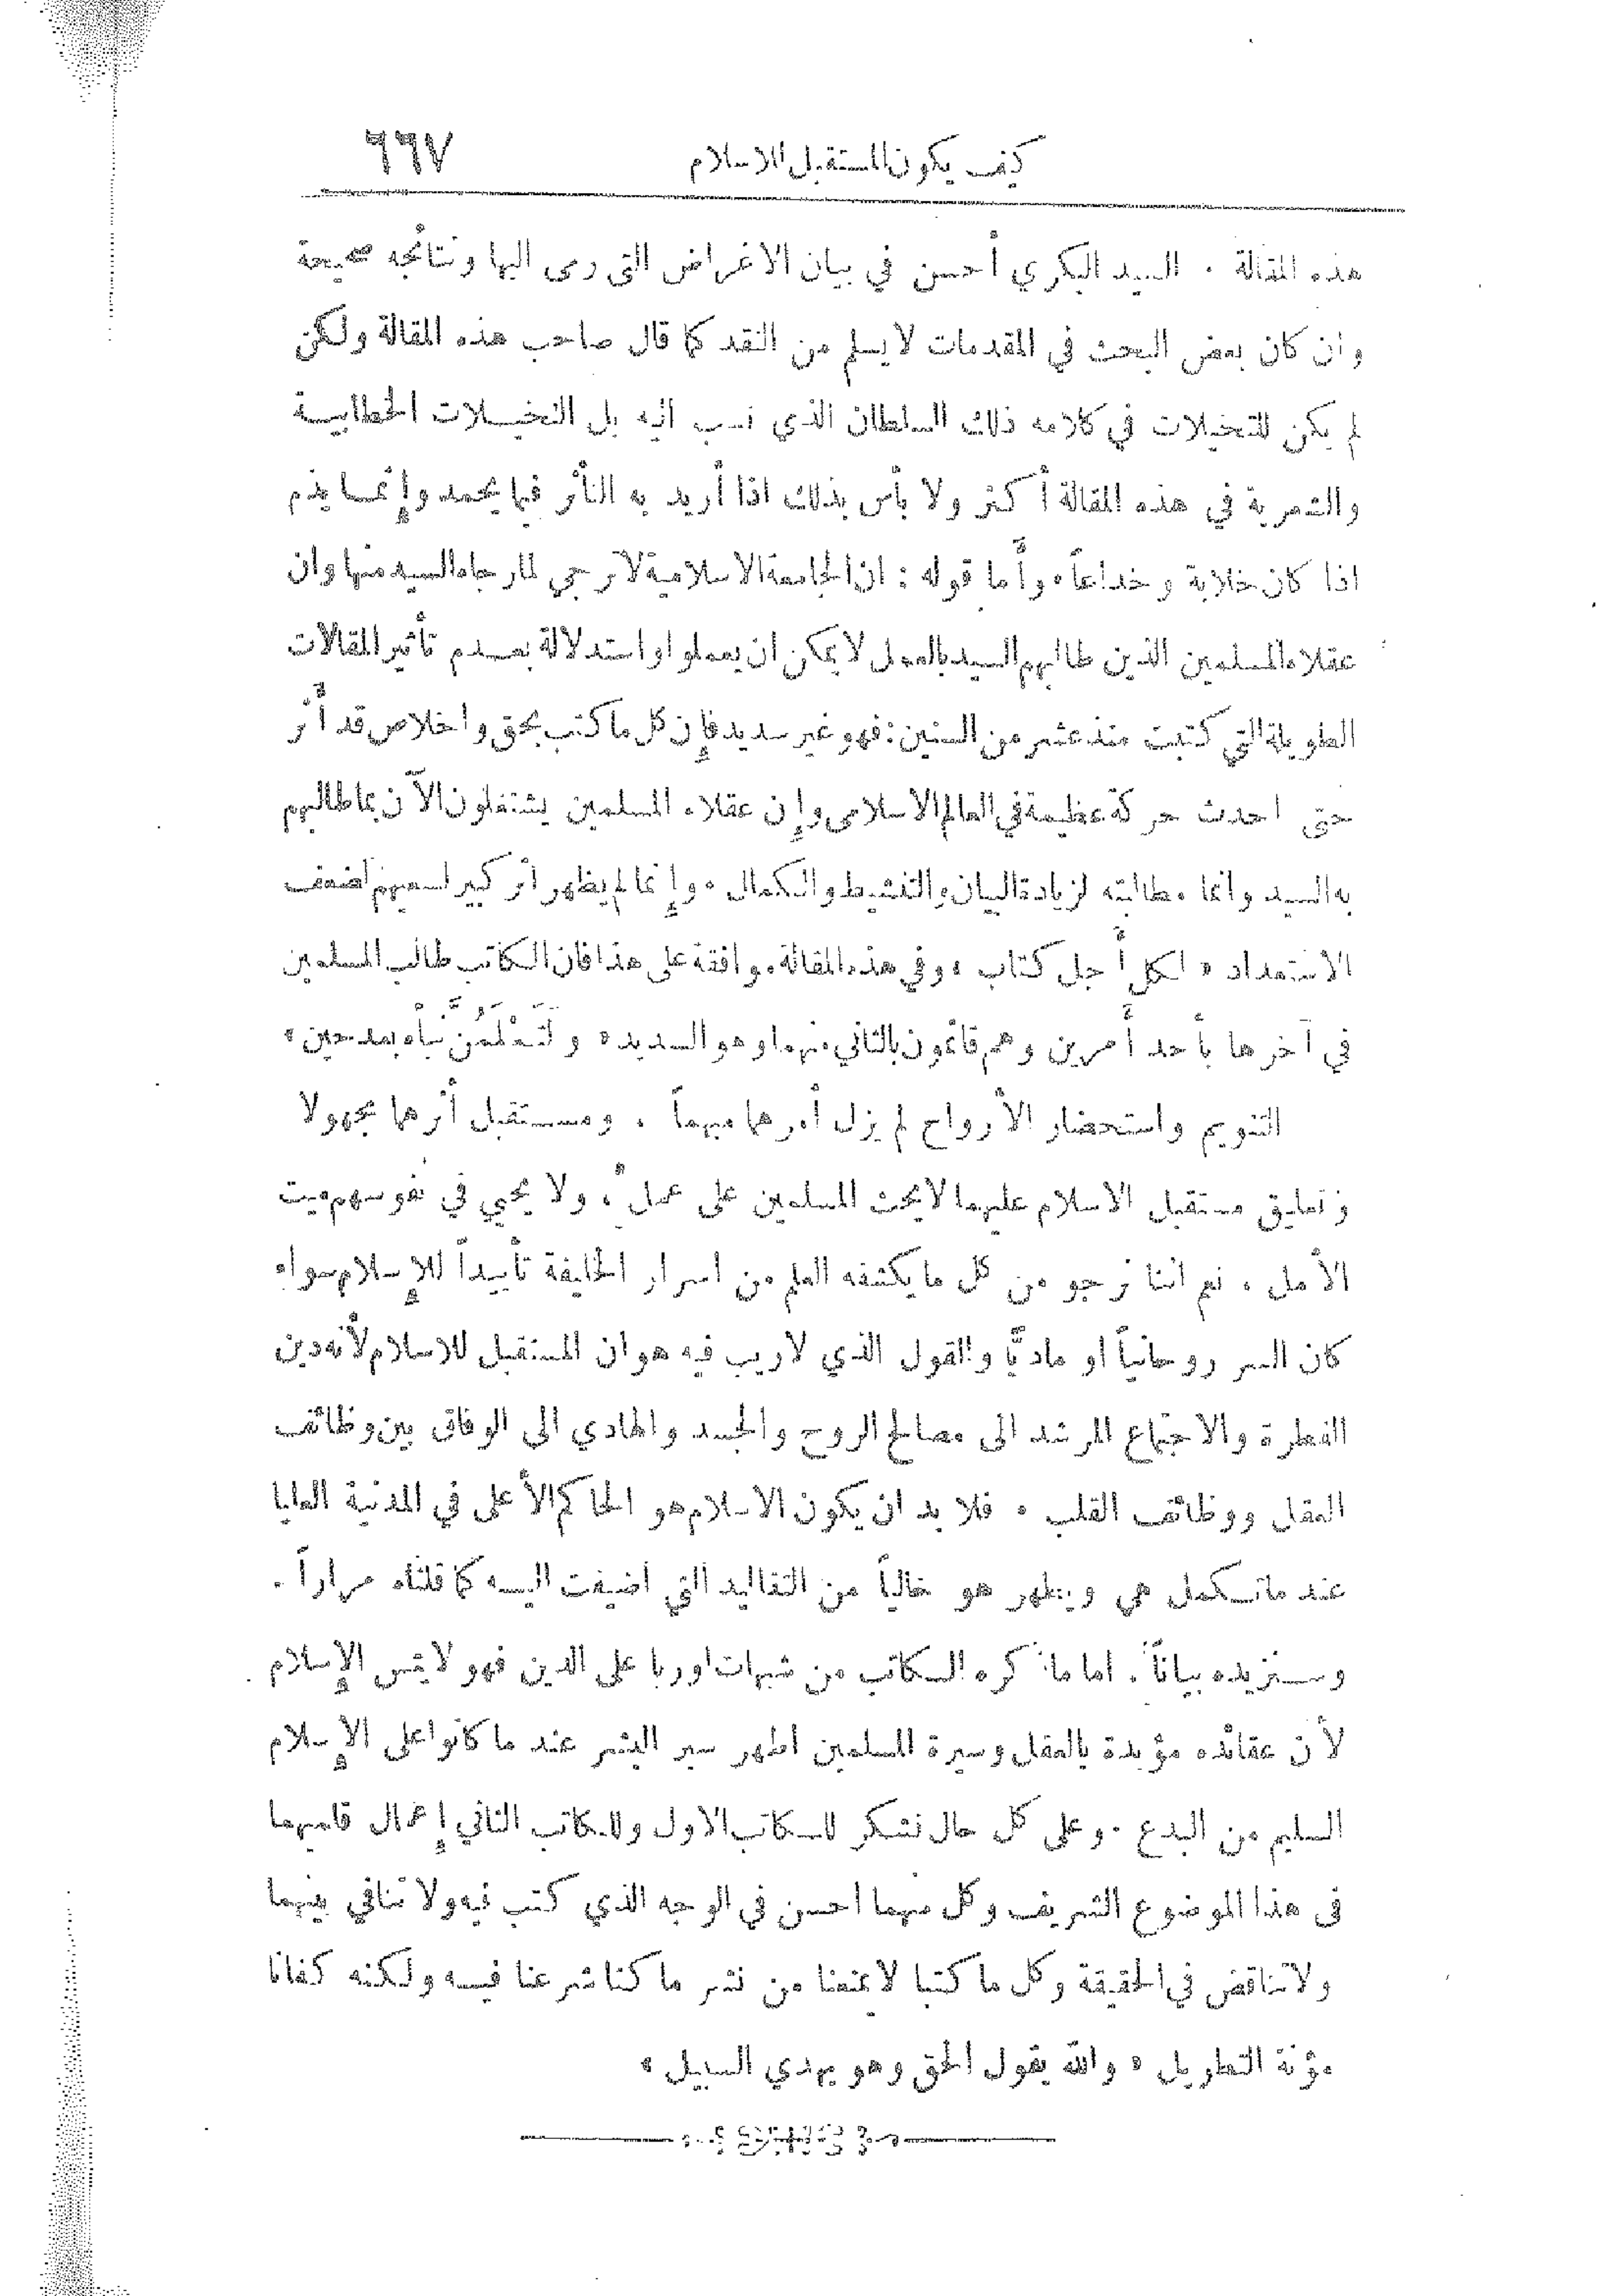 كيف يكون المستقبل للاسلام ٦٦٧
هذه المقالة . السيد البكري أحسن في بيان الاغراض التى رمى اليها ونتائجه صحيحة
وان كان بعض البحث في المقدمات لا يسلم من النقد كما قال صاحب هذه المقالة ولكن
لم يكن للتخيلات في كلامه ذلك السلطان الذي نسب اليه بل التخيـلات الخطابيـة
والشعرية في هذه المقالة أكثر ولا بأس بذلك اذا أريد به التأثر فيما يحمد وإنمـا يذم
اذا كان خلابة وخداعاً ، وأما قوله : ان الجامعة الاسلامية لا ترجي لما رجاه السيد منها وان
عقلاء المسلمين الذين طالبهم السيد بالعمل لا يمكن ان يعملوا واستدلالة بعـدم تأثير المقالات
الطويلة التي كتبت منذ عشر من السنين : فهو غير سديد فإن كل ما كتب بحق واخلاص قد أثر
حتى احدث حركة عظيمة في العالم الاسلامى وإن عقلاء المسلمين يشتغلون الآن بما طالبهم
به السيد وانما مطالبته لزيادة البيان والتنشيط والكمال . وإنما لم يظهر اثر كبير لسعيهم لضعف
الاستعداد « لكل أجل كتاب » وفي هذه المقالة موافقة على هذا فان الكاتب طالب المسلمين
في آخرها بأحد أمرين وهم قائمون بالثاني منهما وهو السديد « ولَتَعْلَمُنَّ نبأه بعد حين »
التنويم واستحضار الأرواح لم يزل أمرهما مبهماً . ومسـتقبل أثرهما مجهولا
وتعليق مستقبل الاسلام عليهما لا يحث المسلمين على عمل ، ولا يحيي في نفوسهم ميت
الأمل ، نعم اننا نرجو من كل ما يكشفه العلم من اسرار الخليقة تأييداً للإسلام سواء
كان السر روحانياً او ماديًّا والقول الذي لا ريب فيه هو ان المستقبل للاسلام لأنه دين
الفطرة والاجتماع المرشد الى مصالح الروح والجسد والهادي الى الوفاق بين وظائف
العقل ووظائف القلب . فلا بد ان يكون الاسلام هو الحاكم الأعلى في المدنية العليا
عند ما تـكمل هي ويظهر هو خالياً من التقاليد التي اضيفت اليـه كما قلناه مراراً .
وسـنزيده بياناً . اما ما ذكره الكاتب من شبهات اوربا على الدين فهو لا يمس الإسلام
لأن عقائده مؤيدة بالعقل وسيرة المسلمين اطهر سير البشر عند ما كانوا على الإسلام
السليم من البدع . وعلى كل حال نشكر للـكاتب الاول وللـكاتب الثاني إعمال قلميهما
فى هذا الموضوع الشريف وكل منهما احسن في الوجه الذي كتب فيه ولا تنافي بينهما
ولا تناقض في الحقيقة وكل ما كتبا لا يمنعنا من نشر ما كنا شرعنا فيـه ولـكنه كفانا
مؤنة التطويل « والله يقول الحق وهو يهدي السبيل »